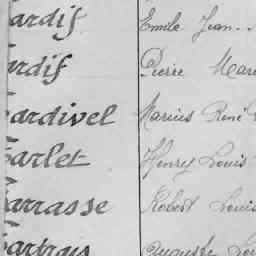 ardif Emile Jean
ardif Pierre Mar
ardivel Marius René
arlet Henry Louis
arrasse Robert Louis
Auguste Lou